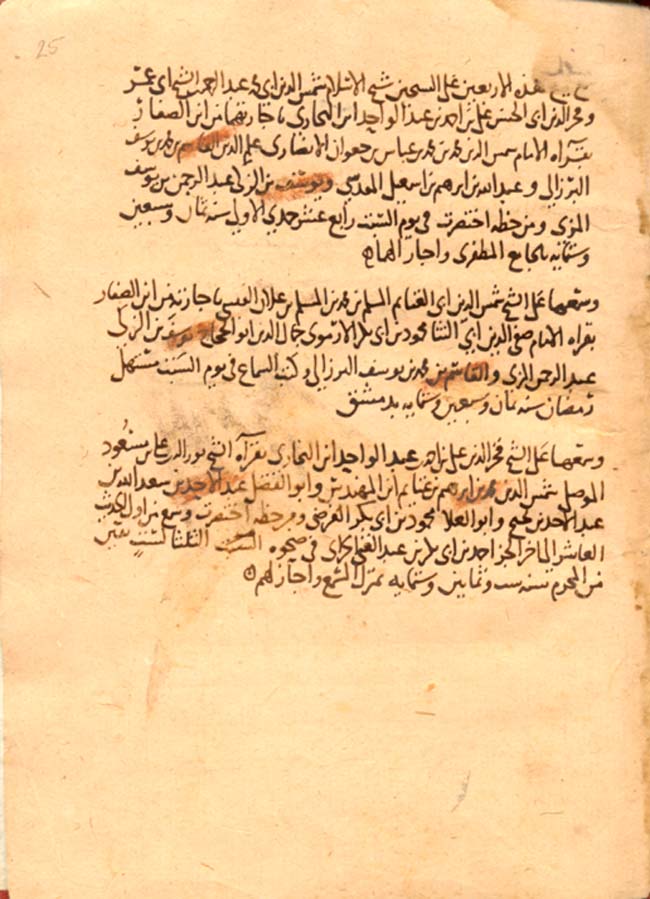 25
سمع جميع هذه الاربعين على الشيخين شيخ الاسلام شمس الدين ابى محمد عبد الرحمن بن الشيخ ابى عمر
وفخر الدين ابى الحسن على بن احمد بن عبد الواحد ابن البخارى باجازتهما من ابن الصفار
بقراه الامام شمس الدين محمد بن محمد بن عباس بن جعوان الانصارى علم الدين القاسم بن محمد بن يوسف
البرزالى وعبد الله بن ابرهيم بن اسمعيل المقدسى ويوسف بن الزكى عبد الرحمن بن يوسف
المزى ومن خطه اختصرت فى يوم السبت رابع عشر جمدى الاولى سنه ثمان وسبعين
وستمايه بالجامع المظفرى واجاز لهما
وسمعها على الشيخ شمس الدين ابى الغنايم المسلم بن محمد بن المسلم بن علان القيسى باجازته من ابن الصفار
بقراه الامام صفى الدين ابى الثنا محمود بن ابى بكر الارموى جمال الدين ابو الحجاج يوسف بن الزكى
عبد الرحمن المزى والقاسم بن محمد بن يوسف البرزالى وكتب السماع فى يوم السبت مستهل
رمضان سنه ثمان وسبعين وستمايه بدمشق
وسمعها على الشيخ فخر الدين على بن احمد بن عبد الواحد ابن البخارى بقراه الشيخ نور الدين على بن مسعود
الموصلى شمس الدين محمد بن ابرهيم بن غنايم ابن المهندس وابو الفضل عبد الاحد بن سعد الدين
عبد الاحد بن وابو العلا محمود بن ابى بكر الفرضى ومن خطه اختصرت وسمع من اول الحديث
العاشر الى اخر الجز احمد بن ابى بكر بن عبد الغنى فى ضحوه السبت الثلثا لست بقين
من المحرم سنه ست وثمانين وستمايه بمنزل المسمع واجاز لهم